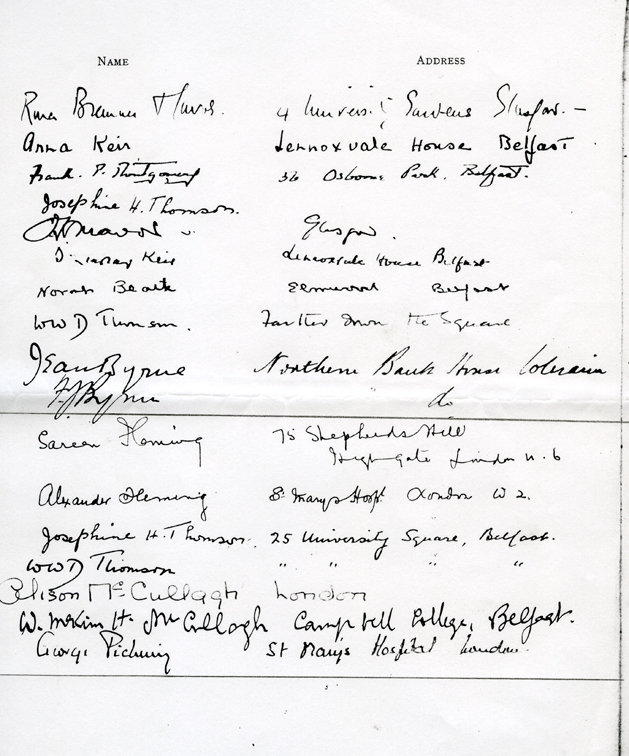 NAME ADDRESS
4 Gardens Glasgow. —
Anna Keir Lennoxvale House Belfast
Frank. P. Montgomery 36 Osborne Park, Belfast.
Josephine H. Thomson.
Glasgow.
Keir Lennoxvale House Belfast
Norah Beath Elmwood Belfast
WWD Thomson. Farther down the Square
Jean Byrne Northern Bank House Coleraine
F J Byrne " do
Sareen Fleming 75 Shepherds Hill
Highgate London N. 6
Alexander Fleming St Marys Hospt London W 2.
Josephine H. Thomson. 25 University Square, Belfast.
WWD Thomson " " " "
Alison McCullagh London
W. McKim H. McCullagh Campbell College, Belfast.
George Pickering St Marys Hospital London.